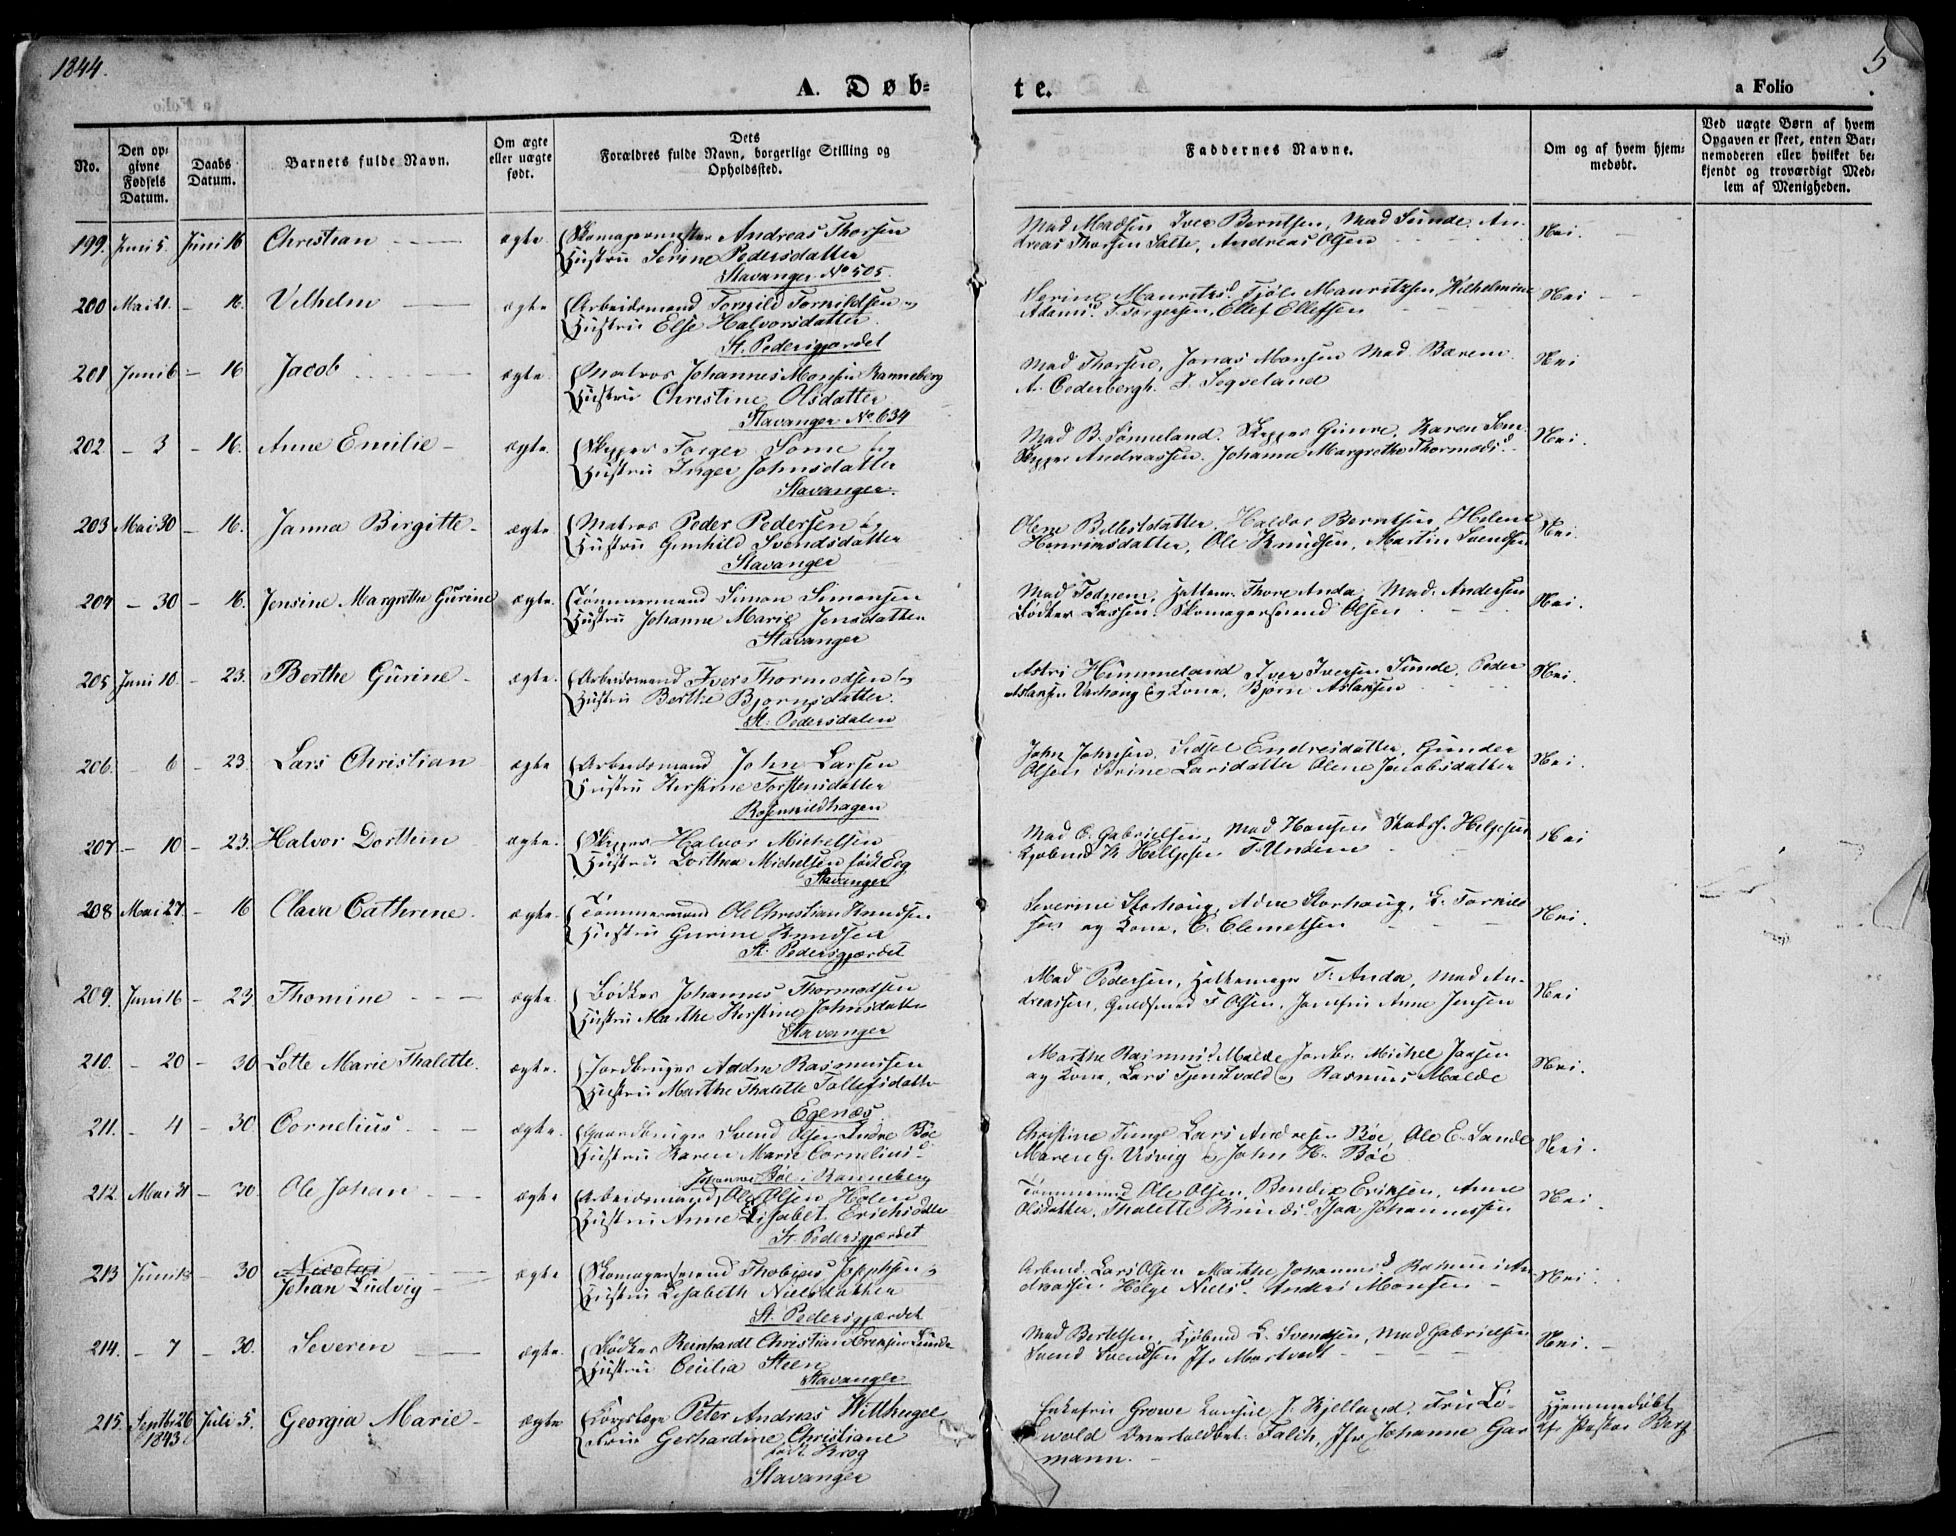 1844.
5
A. Døb-
te.
a Folio
No.
Den op-
givne
Fødsels
Datum.
Daabs
Datum.
Barnets fulde Navn.
Om ægte
eller uægte
født.
Dets
Forældres fulde Navn, borgerlige Stilling og
Opholdssted.
Faddernes Navne.
Om og af hvem hjem-
medøbt.
Ved uægte Børn af hvem
Opgaven er skeet, enten Bar-
nemoderen eller hvilket be-
kjendt og troværdigt Med-
lem af Menigheden.
199. Juni 5. Juni 16 Christian ægte. Skomagermester Andreas Thorsen
Hustru Serine Pedersdatter
Stavanger No 505.
Mad Madsen Iver Berntsen, Mad Sunde. An-
dreas Thorsen Salte, Andreas Olsen
Nei.
200 Mai 21. - 16. Vilhelm ægte Arbeidsmand Tornild Tornildsen og
Hustru Else Halvorsdatter.
St. Pedersgjærdet
Serine Mauritsd. Mauritzsen, Wilhelmine
Adamsd. T. Torgersen, Ellef Ellefsen
Nei
201 Juni 6 - 16 Jacob ægte. Matros Johannes Monsen Ranneberg
Hustru Christine Olsdatter
Stavanger No 634
Mad Thorsen, Jonas Monsen Mad. Barem.
A. Cederbergh. Sogveland
Nei
202 - 3 - 16. Anne Emilie - ægte. Skipper Torger Some og
Hustru Inger Johnsdatter
Stavanger.
Mad B. Sømmeland. Skipper Gunre, Karen Som
Skipper Andreassen. Johanne Margrethe Thormodsd.
Nei.
203 Mai 30 - 16. Janna Birgitte - ægte Matros Peder Pedersen og
Hustru Gunhild Svendsdatter
Stavanger
Olene Haldor Berntsen, Helene
Henriksdatter, Ole Knudsen, Martin Svendsen
Nei.
204 - 30 - 16. Jensine Margrethe Gurine ægte. Tømmermand Simon Simonsen
Hustru Johanne Marie Jensdatter
Stavanger
Mad Todnem, Thore Anda, Mad. Andersen
Bødker Lassen. Skomagersvend Olsen
Nei.
205 Juni 10 - 23. Berthe Gurine - ægte. Arbeidsmand Iver Thormodsen og
Hustru Berthe Bjørnsdatter.
St. Pedersdalen
Astri Himmeland Iver Iversen Sunde, Peder
Aslaksen Varhoug og Kone, Bjørn Aslaksen
Nei.
206. - 6 - 23. Lars Christian ægte Arbeidsmand John Larsen
Hustru Kirstine Torstensdatter
Rosenkildhagen
John Johnsen, Sidsel Endresdatter, Gunder
Olsen Serine Larsdatter Olene Jacobsdatter
Nei.
207 - 10 - 23. Halvor Dorthin ægte. Skipper Halvor Michelsen
Hustru Dorthea Michelsen født Eeg
Stavanger
Mad C. Gabrielsen, Mad Hansen Helgesen
Kjøbmd Helljesen
Nei
208 Mai 27. - 16 Clava Cathrine. ægte. Tømmermand Ole Christian Knudsen
Hustru Gurine Knudsen
St. Pedersgjærdet
Severine Storhoug, Adne Storhaug, L. Tornild
sen og Kone, C. Clemetsen
Nei.
209. Juni 16 - 23 Thomine ægte. Bødker Johannes Thormodsen
Hustru Marthe Kirstine Johnsdatter
Stavanger
Mad Pedersen, Hattemager T. Anda, Mad An-
dreassen, Guldsmed T Olsen, Jomfru Anne Jensen
Nei
210. - 20 - 30 Lotte Marie Thalette. ægte. Jordbruger Addne Rasmussen
Hustru Marthe Thalette Tollefsdatter
Egenæs
Marthe Rasmusd. Malde Michel Jansen
og Kone, Lars Tjenstvold og Rasmus Malde
Nei.
211. - 4 - 30. Cornelius ægte. Gaardbruger Svend Olsen Indre Bøe
Hustru Karen Marie Corneliusd.
Bøe i Ranneberg
Christine Tunge Lars Andresen Bøe, Ole E. Sande
Maren G. Visvig John H. Bøe
Nei.
212. Mai 31 - 30. Ole Johan ægte Johannes
Arbeidsmand Ole Olsen Holen
Hustru Anne Elisabet Erichsdatter
St. Pedersgjærdet
Tømmermd Ole Olsen, Bendix Eriksen, Anne
Olsdatter, Thalette Knudsd. Isak Johannessen
Nei.
213 Juni 13 - 30 Nicolai
Johan Ludvig - ægte Skomagersvend Thobias Josephsen og
Hustru Lisabeth Nielsdatter
St. Pedersgjærdet
Arbmd. Lars Olsen Marthe Johannesd. Rasmus An
dreassen. Helge Nielsd. Anders Monsen
Nei.
214. - 7 - 30. Severen ægte. Bødker Reinhardt Christian Erensen Lunde
Hustru Cecilia Steen
Stavanger
Mad Bertelsen, Kjøbmd L. Svendsen, Mad Gabrielsen
Svend Svendsen Jfr
Nei.
215. Septbr 26
1843 Juli 5. Georgia Marie - ægte Peter Andreas Witthugel
Gerhardine Christiane
født Krog
Stavanger
Enkefru Growe Consul J. Kjelland. Fru Lø-
wold Falch, Jfr Johanne Gar
mann.
Hjemmedøbt
af Pastor Berg